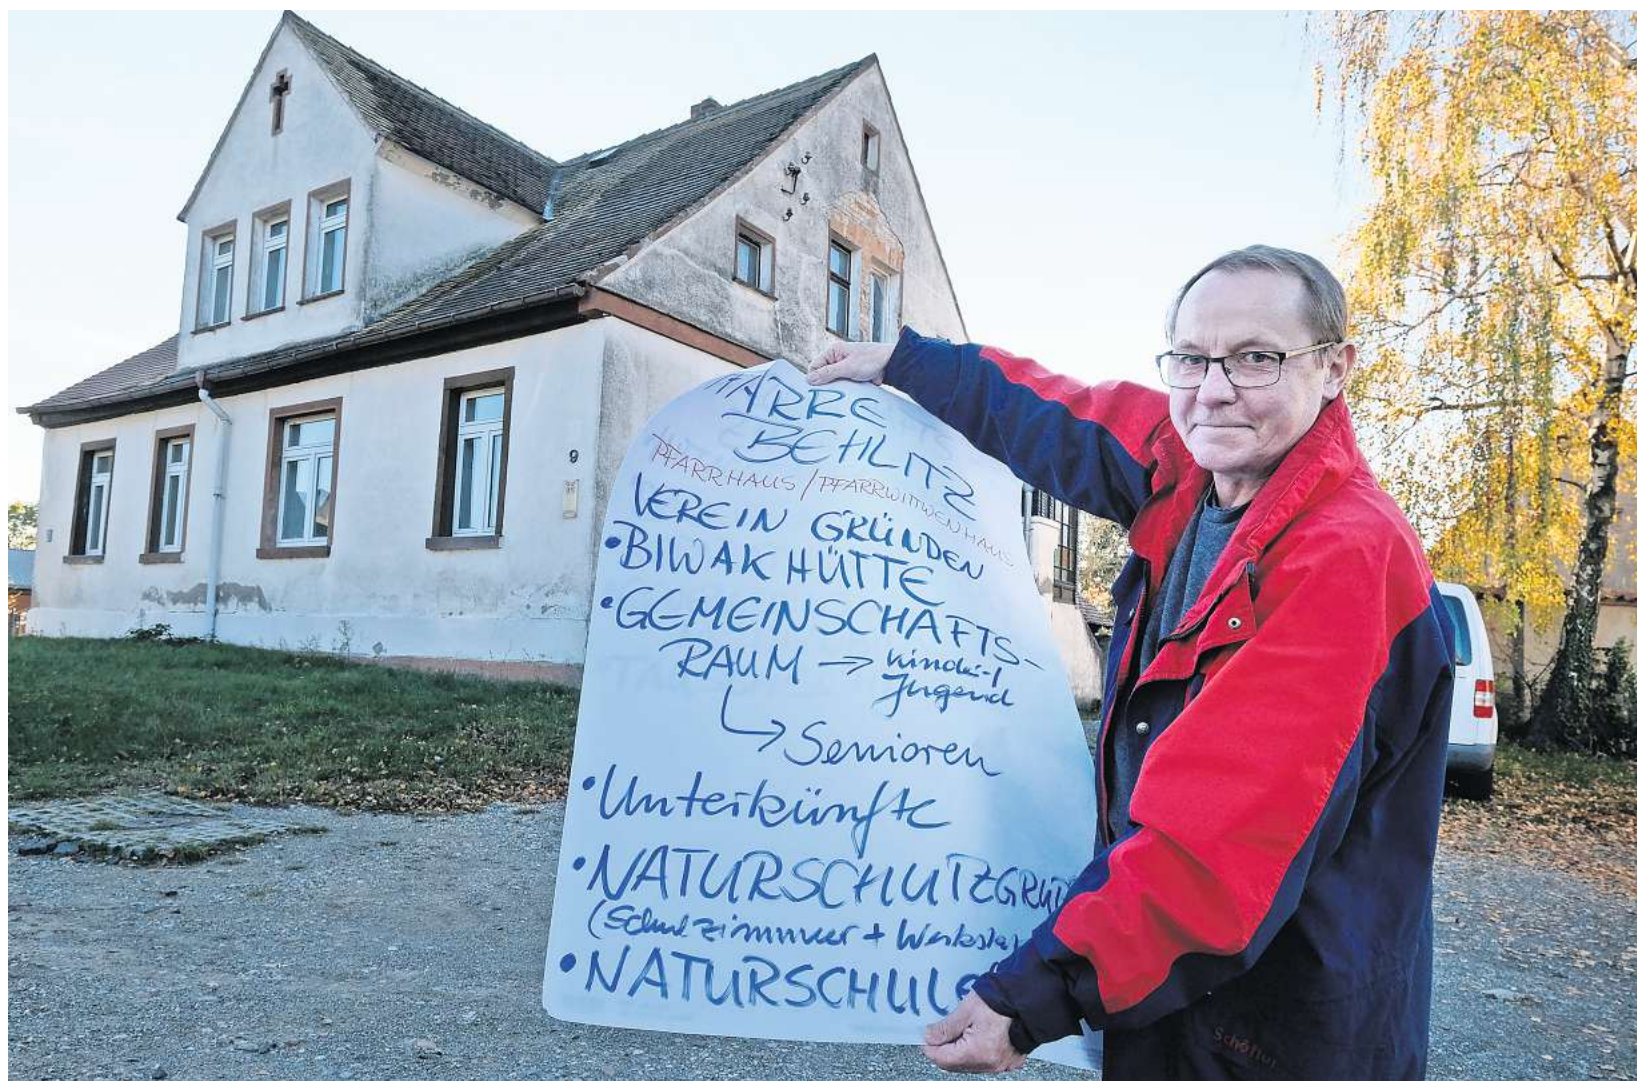 PFARRE
BEHLITZ
PFARRHAUS / PFARRWITTWENHAUS
VEREIN GRÜNDEN
• BIWAKHÜTTE
• GEMEINSCHAFTS-
RAUM → Kinder/
Jugend
↳ Senioren
• Unterkünfte
• NATURSCHUTZGRUP
(Schulzimmer + Werksta
• NATURSCHULE
9
Schöffel